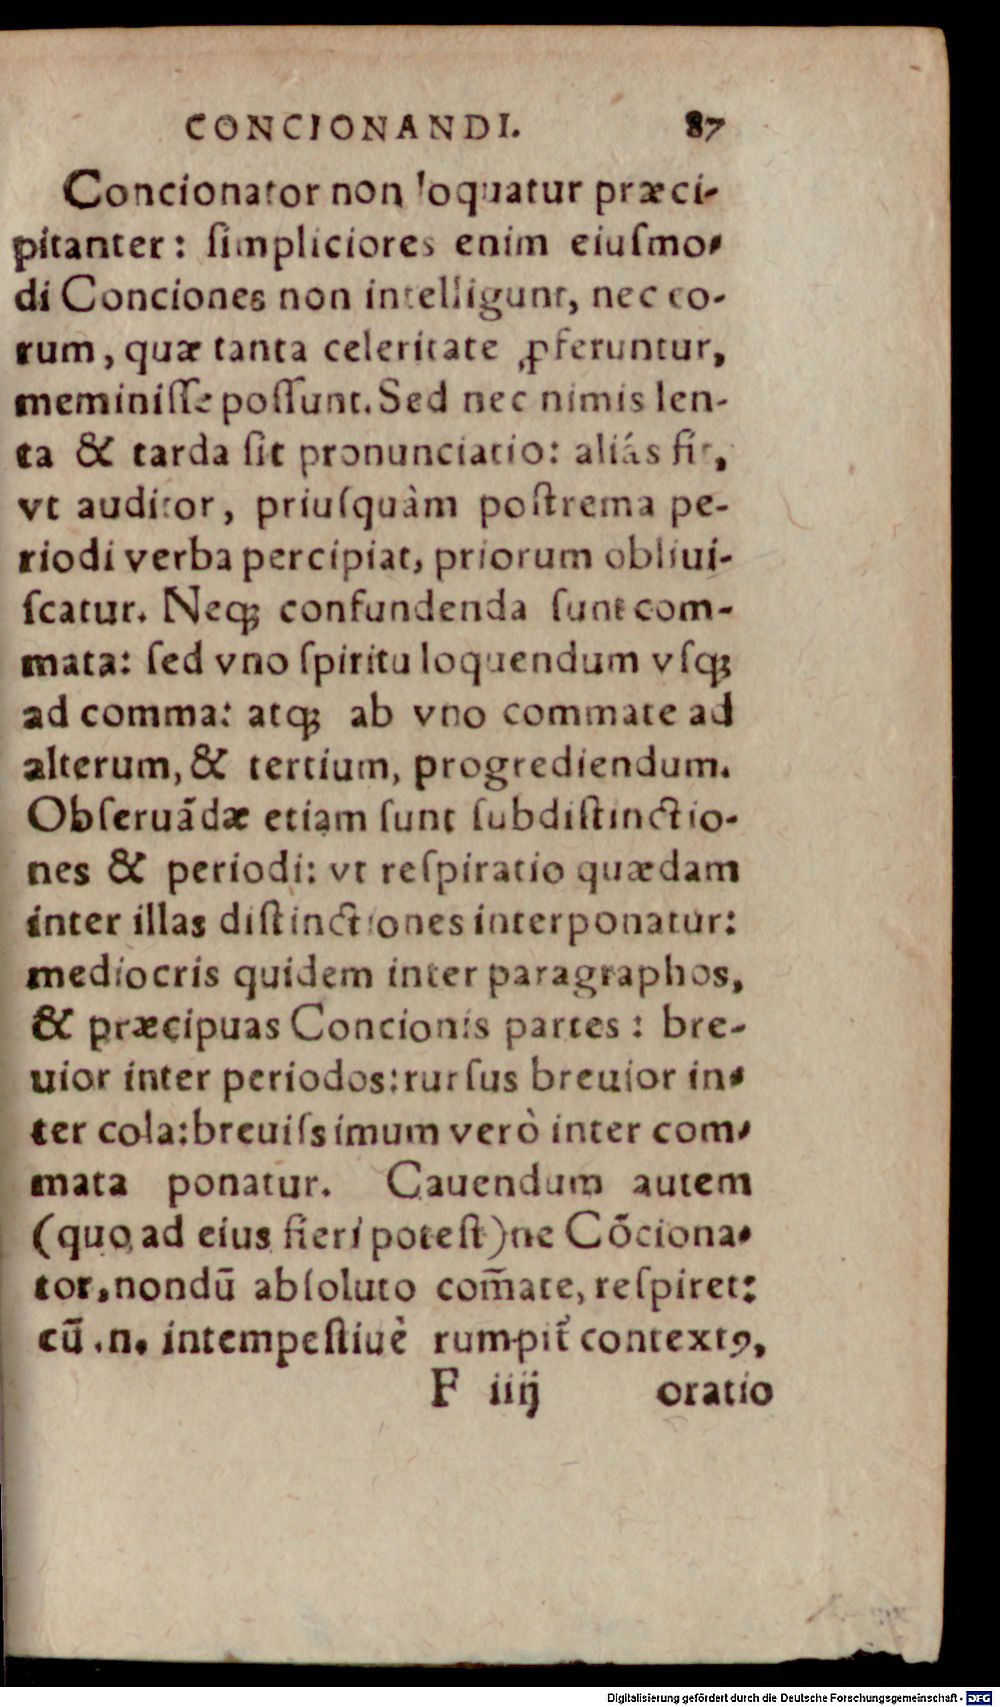 CONCIONANDI. 87
Concionator non loquatur præci-
pitanter: ſimpliciores enim eiuſmo-
di Conciones non intelligunt, nec eo-
rum, quæ tanta celeritate ꝓferuntur,
meminiſſe poſſunt. Sed nec nimis len-
ta & tarda ſit pronunciatio: aliás fit,
vt auditor, priuſquàm poſtrema pe-
riodi verba percipiat, priorum obliui-
ſcatur. Neqꝫ confundenda ſunt com-
mata: ſed vno ſpiritu loquendum vſqꝫ
ad comma: atqꝫ ab vno commate ad
alterum, & tertium, progrediendum.
Obſeruãdæ etiam ſunt ſubdiſtinctio-
nes & periodi: vt reſpiratio quædam
inter illas diſtinctiones interponatur:
mediocris quidem inter paragraphos,
& præcipuas Concionis partes: bre-
uior inter periodos: rurſus breuior in-
ter cola: breuiſsimum verò inter com-
mata ponatur. Cauendum autem
(quo ad eius fieri poteſt) ne Cõciona-
tor, nondũ abſoluto com̃ate, reſpiret:
cũ .n. intempeſtiuè rumpit̃ contextꝰ,
F iiij oratio
Digitalisierung gefördert durch die Deutsche Forschungsgemeinschaft - DFG